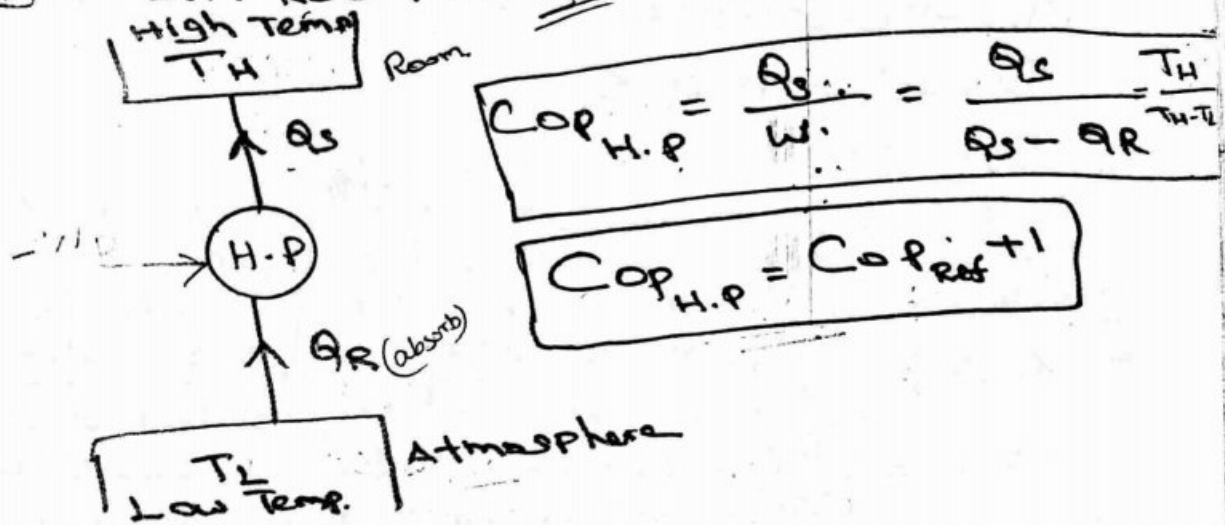 High Temp
TH
Room
QS
H.P
QR (absorb)
TL
Low Temp.
Atmosphere
COP H.P = QS / W = QS / QS - QR = TH / TH-TL
COP H.P = COP Ref +1